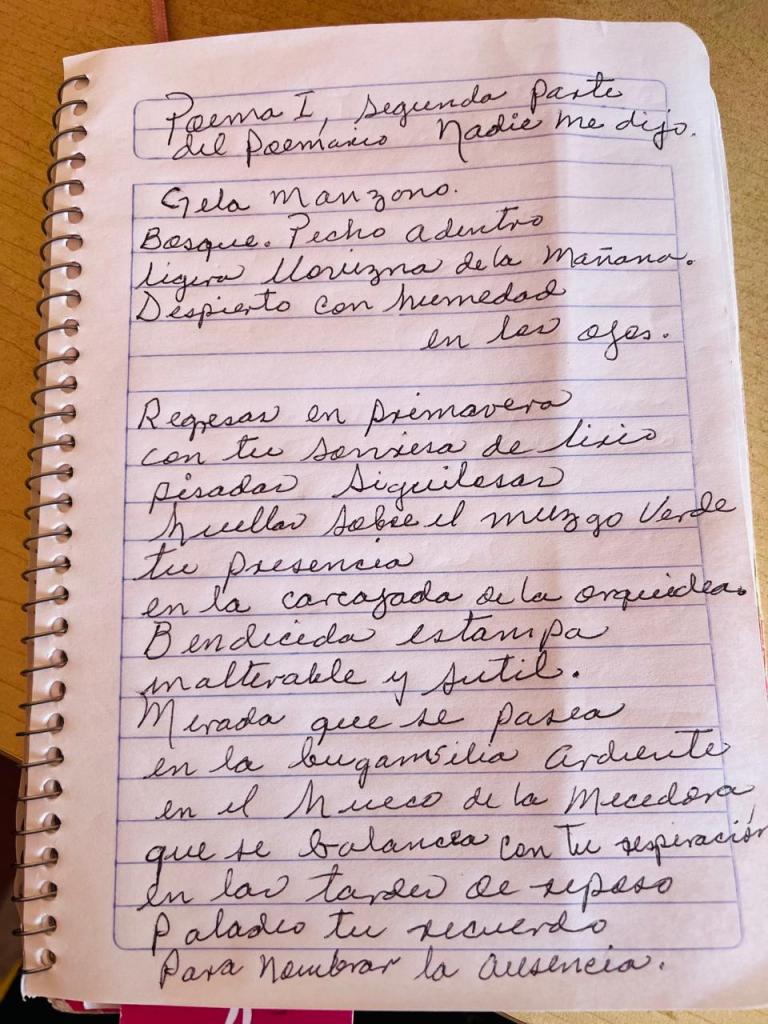 Poema I, segunda parte
del poemario Nadie me dijo.
Gela Manzano.
Bosque. Pecho adentro
ligera llovizna de la mañana.
Despierto con humedad
en los ojos.
Regresas en primavera
con tu sonrisa de lirio
pisadas sigilosas
huellas sobre el muzgo verde
tu presencia
en la carcajada de la orquidea.
Bendecida estampa
inalterable y sutil.
Mirada que se pasea
en la bugambilia ardiente
en el hueco de la mecedora
que se balancea con tu respiración
en las tardes de reposo
Paladeo tu recuerdo
Para nombrar la ausencia.